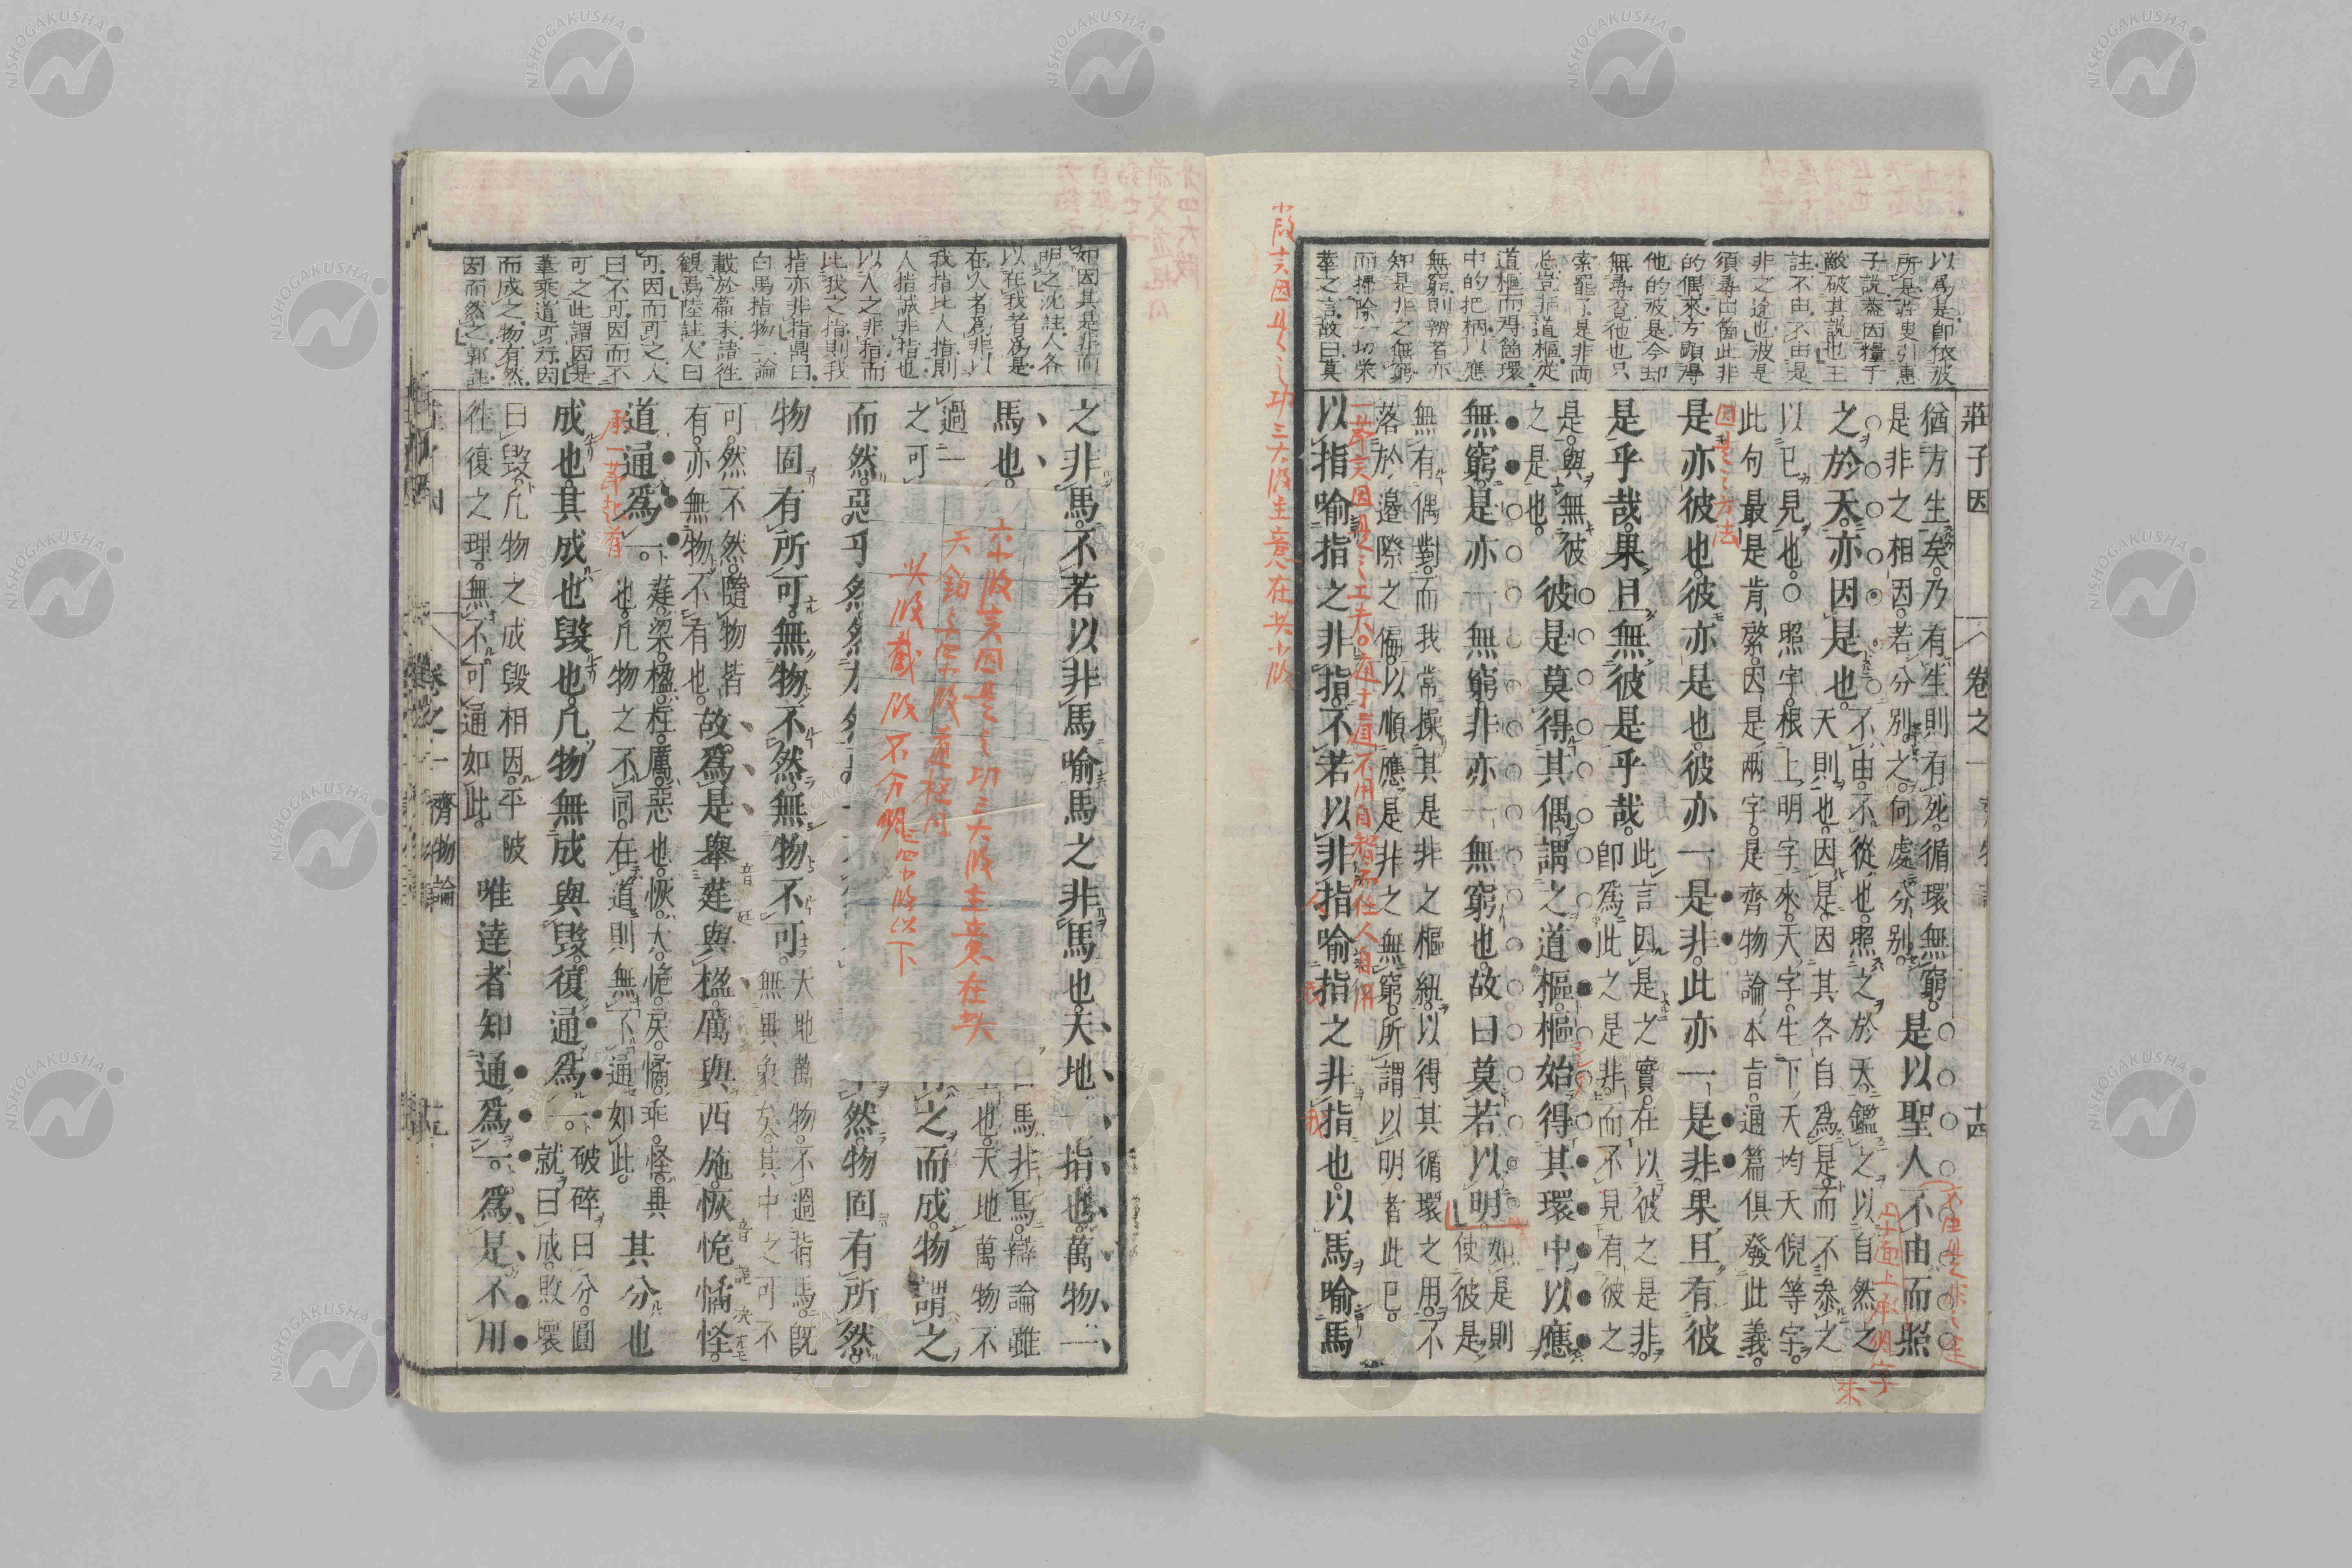 莊子因 卷之一 十四
以爲是卽依彼
所是莊叟引惠
子說蓋因糧于
敵破其說也王
註不由不由是
非之途也彼是
須尋出箇此非
的偶來方顯得
他的彼是今却
無尋覓他也只
索罷了是非兩
忘豈非道樞從
道樞而得箇環
中的把柄以應
無窮則辨者亦
知是非之無窮
而掃除一切榮
華之言故曰莫
猶方生矣乃有生則有死循環無窮是以聖人不由而照
是非之相因若分別之何處分別
之於天亦因是也不由不從也照之於天鑑之以自然之
天則也因是因其各自爲是而不參之
以已見也○照字根上明字來天字生下天均天倪等字
此句最是肯綮因是兩字是齊物論本旨通篇俱發此義
是亦彼也彼亦是也彼亦一是非此亦一是非果且有彼
是乎哉果且無彼是乎哉此言因是之實在以彼之是非
卽爲此之是非而不見有彼之
是與無彼
之是也
彼是莫得其偶謂之道樞樞始得其環中以應
無窮是亦一無窮非亦一無窮也故曰莫若以明如是則
使彼是
無有偶對而我常操其是非之樞紐以得其循環之用不
落於邊際之偏以順應是非之無窮所謂以明者此已
以指喻指之非指不若以非指喻指之非指也以馬喻馬
因是之方法
小段言因是之功三大段主意在其小段
字面上承明字
來
如因其是非而
明之沈註人各
以在我者爲是
在人者爲非以
我指比人指則
人指誠非指也
以人之非指而
比我之指則我
指亦非指鼎曰
白馬指物二論
載於篇末請徃
觀焉陸註人曰
可因而可之人
曰不可因而不
可之此謂因是
華乘道可行因
而成之物有然
因而然之郭註
之非馬不若以非馬喻馬之非馬也天地一指也萬物一
馬也
白馬非馬辯論雖
也天地萬物不
過一
之可
之而成物謂之
而然惡乎然然
然物固有所然
物固有所可無物不然無物不可天地萬物不過指馬旣
無異象矣其中之可不
可然不然隨物皆
有亦無物不有也
故爲是舉莛與楹厲與西施恢恑憰怪
道通爲一莛梁楹柱厲惡也恢大恑戾憰乖怪異
也凡物之不同在道則無不通如此
其分也
成也其成也毀也凡物無成與毀復通爲一破碎曰分圓
就曰成敗壞
曰毀凡物之成毀相因平陂
徃復之理無不可通如此
唯達者知通爲一爲是不用
本段言因是之功三大段主意在其
天鈞
其段截段不分明四小段以下
承一節起者
卷之一 齊物論